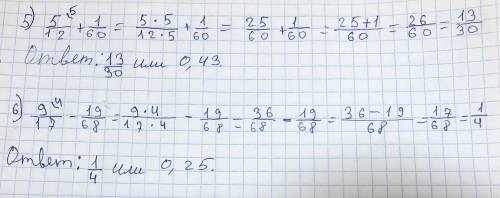 5) 5/12 ⁵ + 1/60 = 5·5/12·5 + 1/60 = 25/60 + 1/60 = 25+1/60 = 26/60 = 13/30
Ответ: 13/30 или 0,43.
6) 9/17 ⁴ - 19/68 = 9·4/17·4 - 19/68 = 36/68 - 19/68 = 36-19/68 = 17/68 = 1/4
Ответ: 1/4 или 0,25.